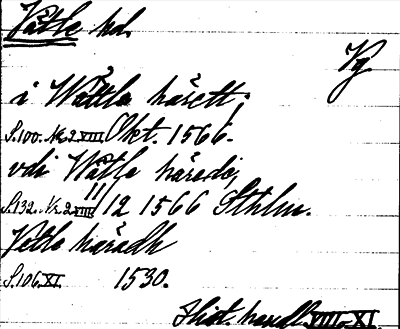 Vättle hd.
Vg
i Wättle härett;
S. 100. Nr. 2 VIII Okt. 1566.
vdi Wätle häredt;
S. 132. Nr. 2 VIII 11/12 1566 Sthlm.
Vetle häradh
S. 106 XI. 1530.
Hist. handl. VIII, XI.